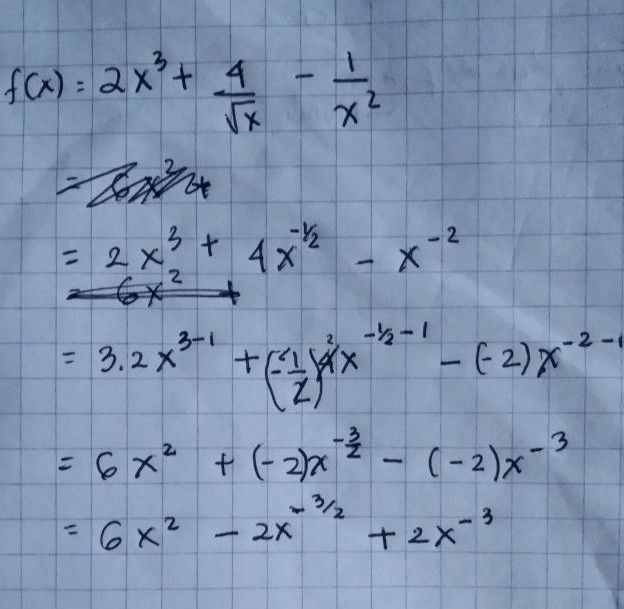 f(x) = 2x³ + 4/√x - 1/x²
= 6x² +
= 2x³ + 4x^(-1/2) - x^(-2)
= 6x² +
= 3.2x^(3-1) + (-1/2)4²x^(-1/2-1) - (-2)x^(-2-1)
= 6x² + (-2)x^(-3/2) - (-2)x^(-3)
= 6x² - 2x^(-3/2) + 2x^(-3)